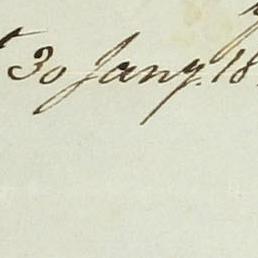 30 Jany. 18